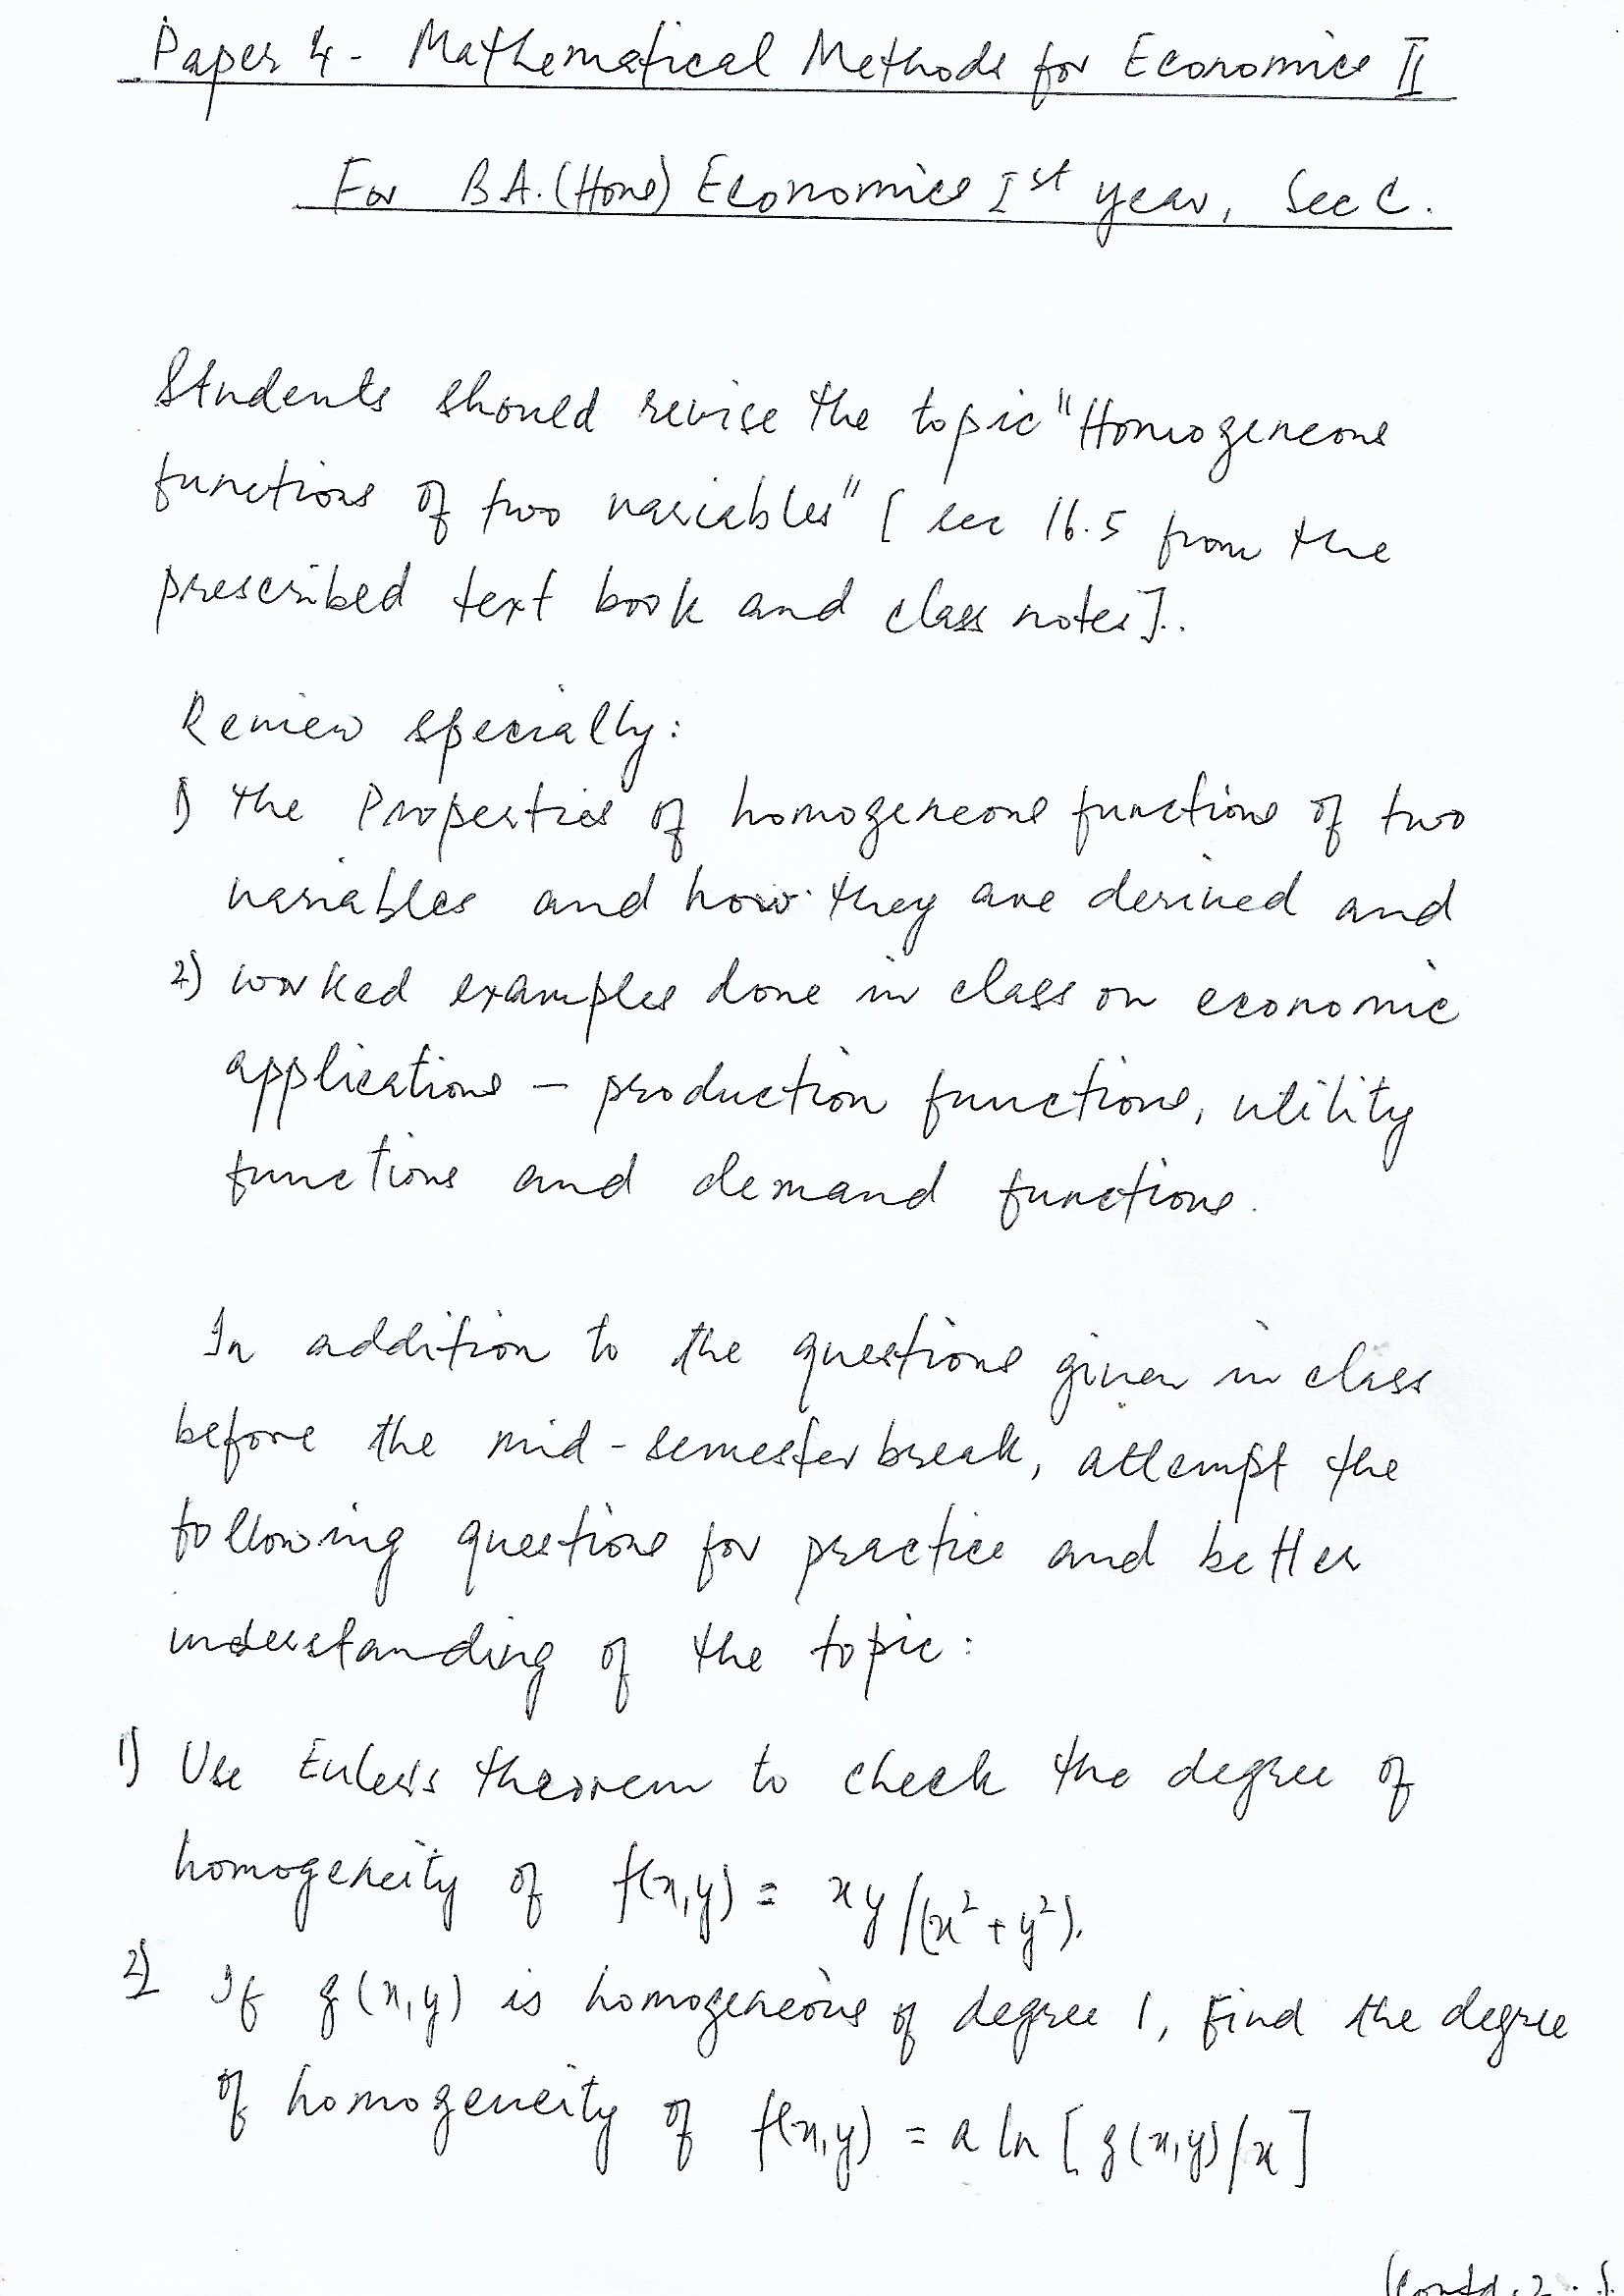 Paper 4 - Mathematical Methods for Economics II
For B.A. (Hons) Economics Ist year, Sec C.
Students should revise the topic "Homogeneous
functions of two variables" [ sec 16.5 from the
prescribed text book and class notes]..
Review specially:
1) the Properties of homogeneous functions of two
variables and how they are derived and
2) worked examples done in class on economic
applications - production functions, utility
functions and demand functions.
In addition to the questions given in class
before the mid-semester break, attempt the
following questions for practice and better
understanding of the topic:
1) Use Euler's theorem to check the degree of
homogeneity of f(x,y) = xy/(x²+y²).
2) If g(x,y) is homogeneous of degree 1, find the degree
of homogeneity of f(x,y) = a ln [g(x,y)/x]
(Contd. 2